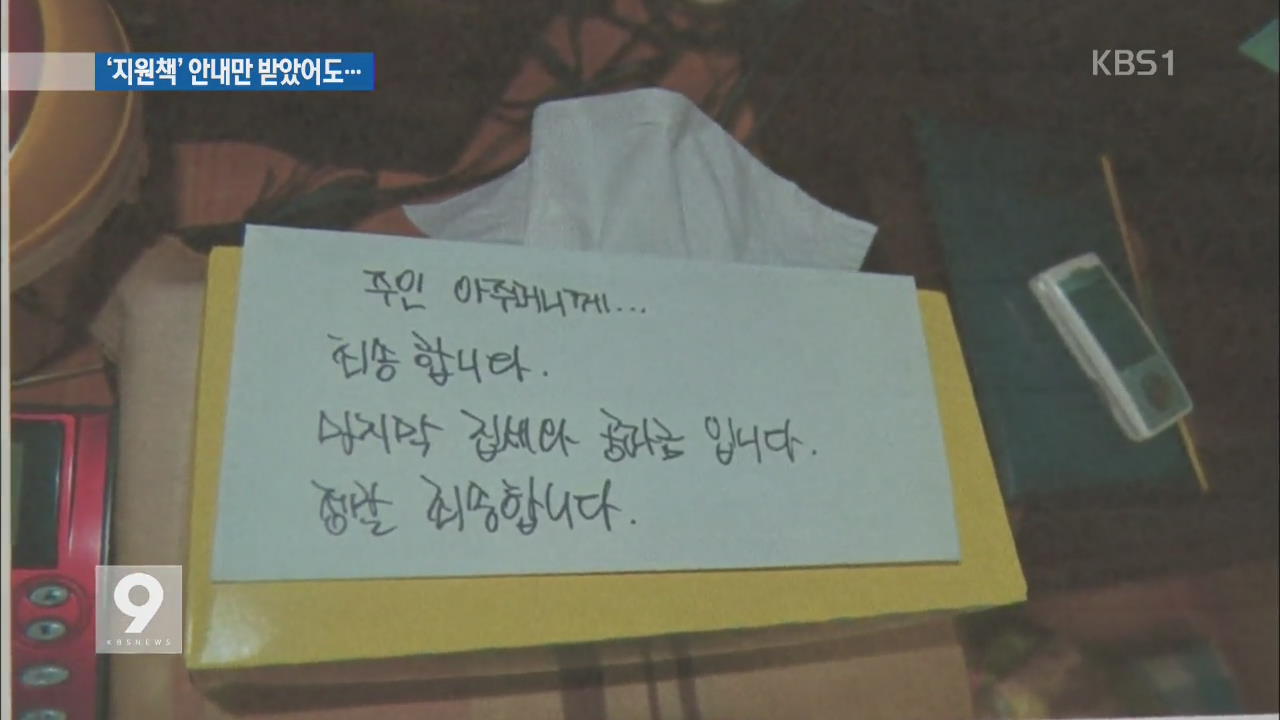 ‘지원책’ 안내만 받았어도…
KBS1
주인 아주머니께...
죄송합니다.
마지막 집세와 공과금 입니다.
정말 죄송합니다.
9
KBSNEWS